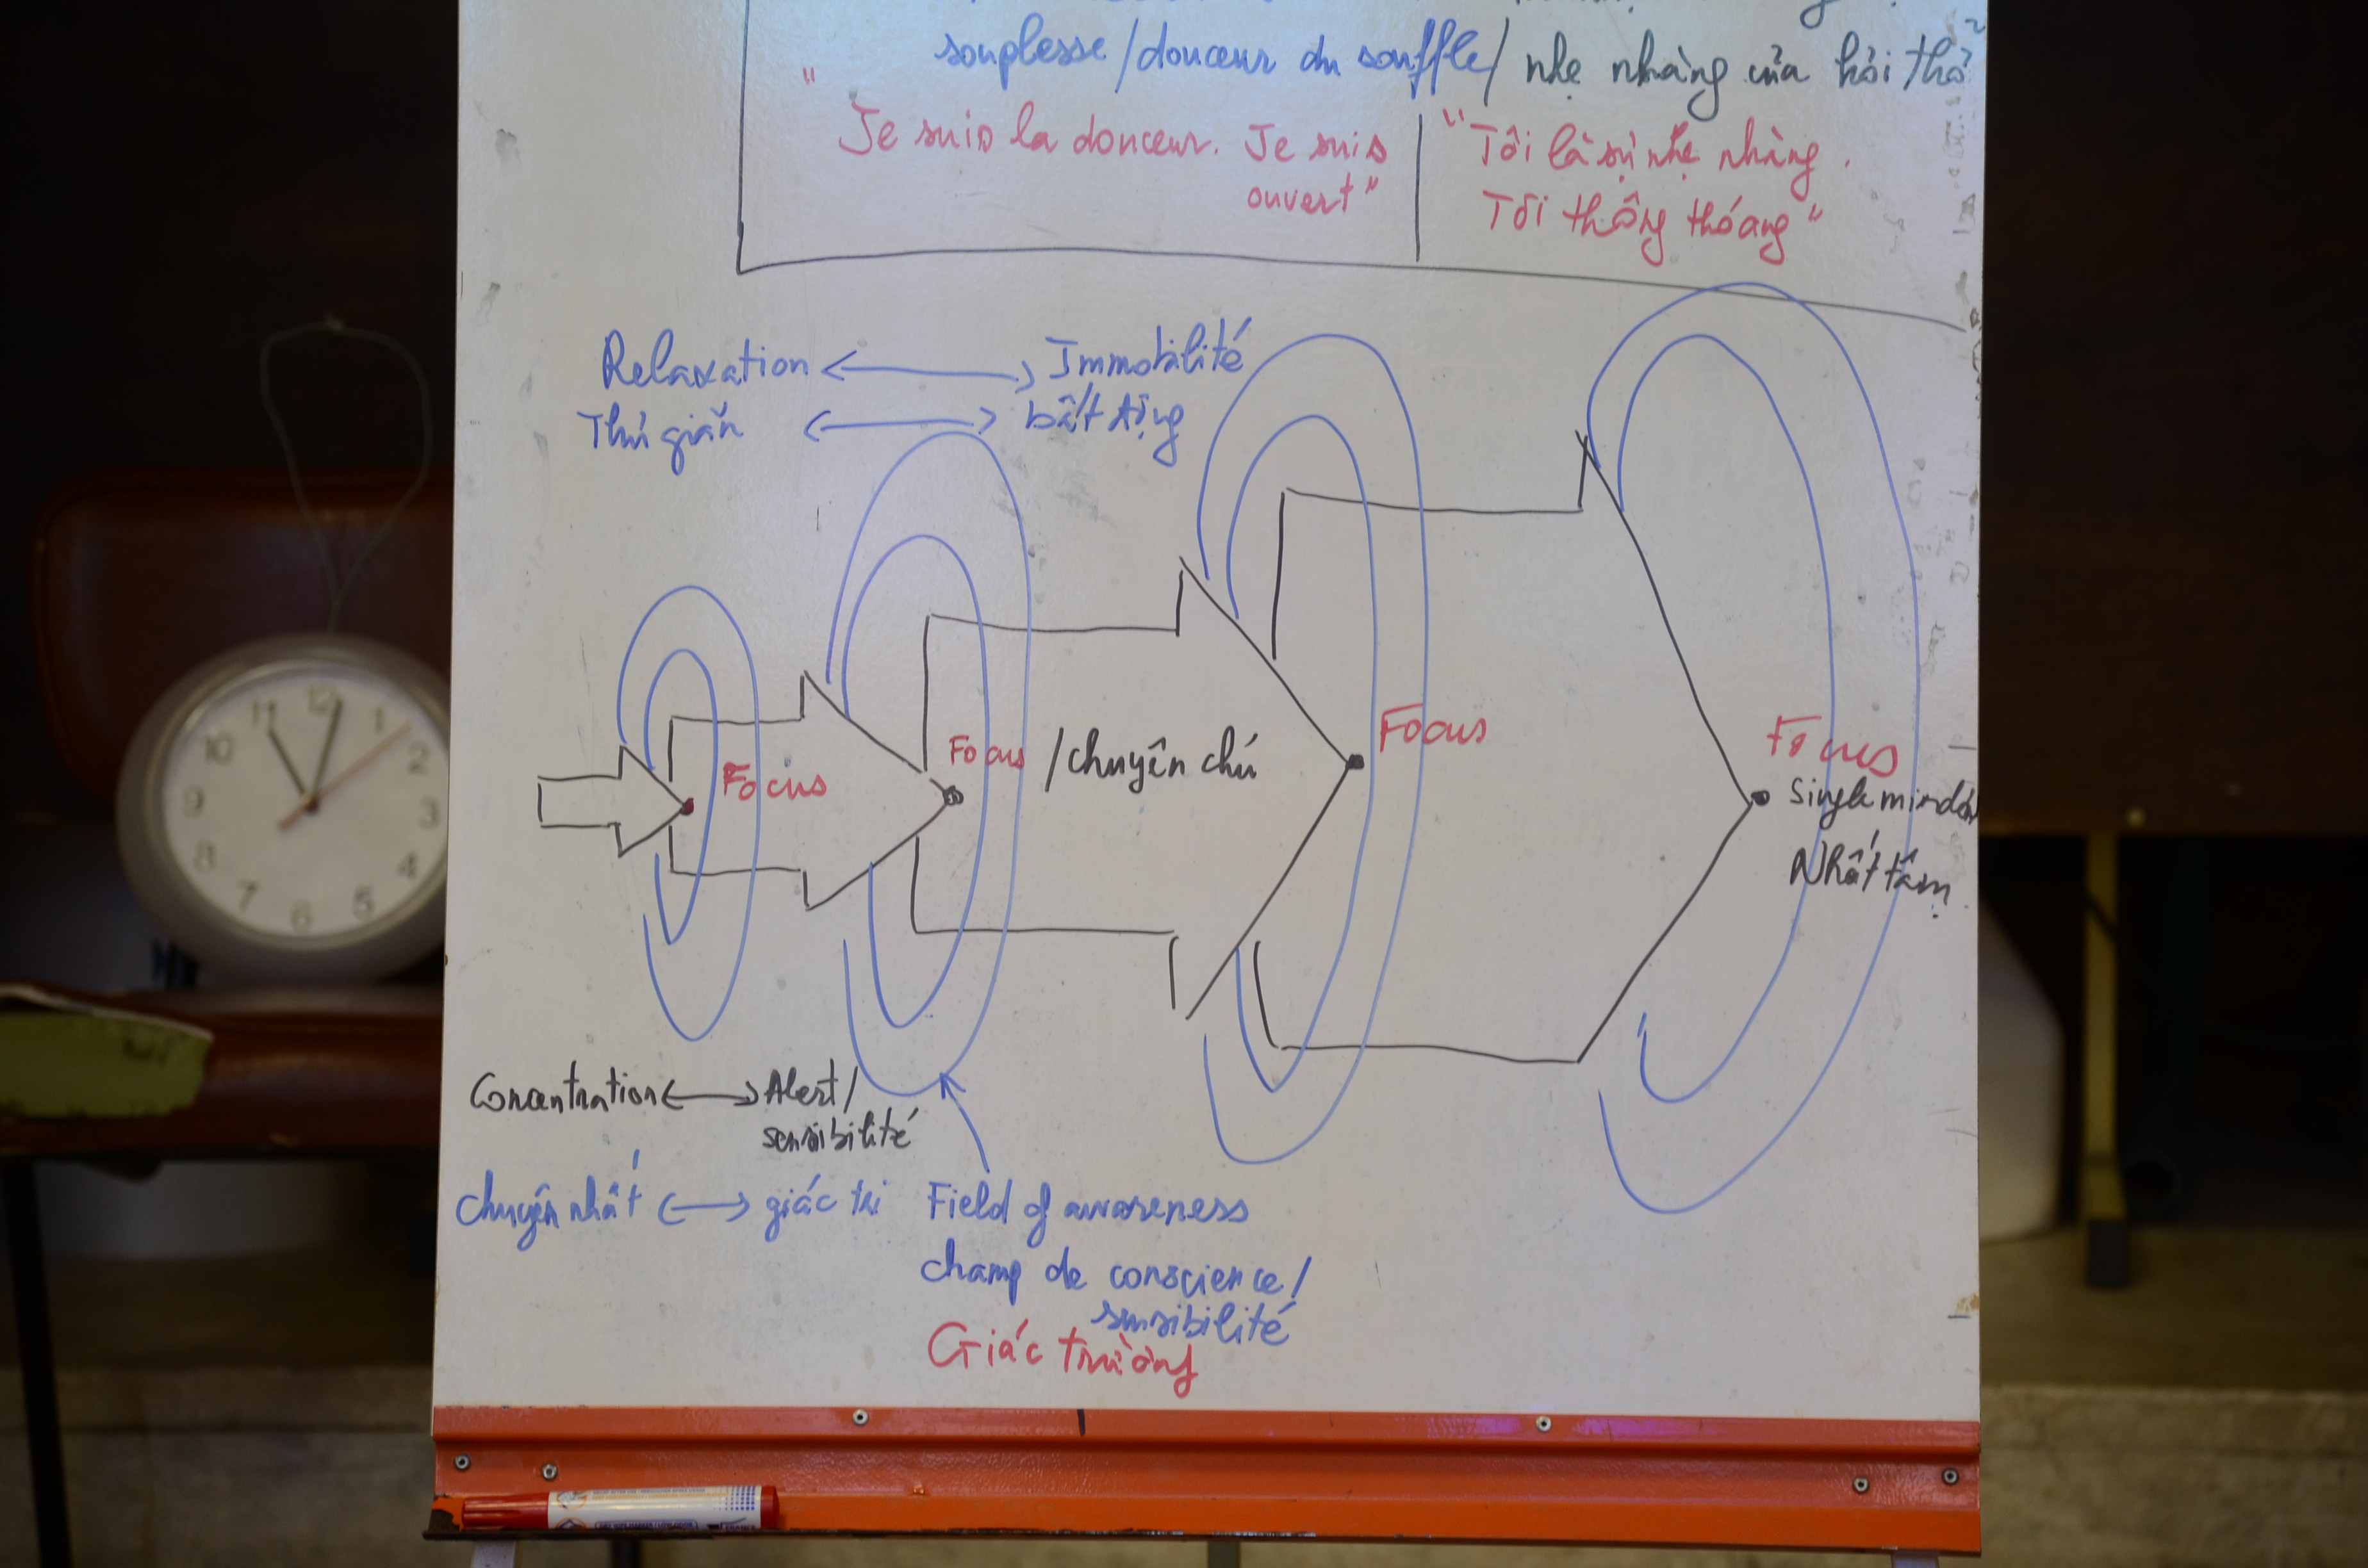 souplesse/douceur du souffle/ nhẹ nhàng của hơi thở
"Je suis la douceur. Je suis
ouvert"
"Tôi là sự nhẹ nhàng.
Tôi thông thóang"
Relaxation <-> Immobilité
Thư giãn <-> bất động
Focus
Focus
/chuyên chú
Focus
Focus
Single minded
Nhất tâm
Concentration <-> Alert/
sensibilité
chuyên nhất <-> giác tri
Field of awareness
champ de conscience/
sensibilité
Giác trường
11 12 1
10 2
9 3
8 4
7 6 5